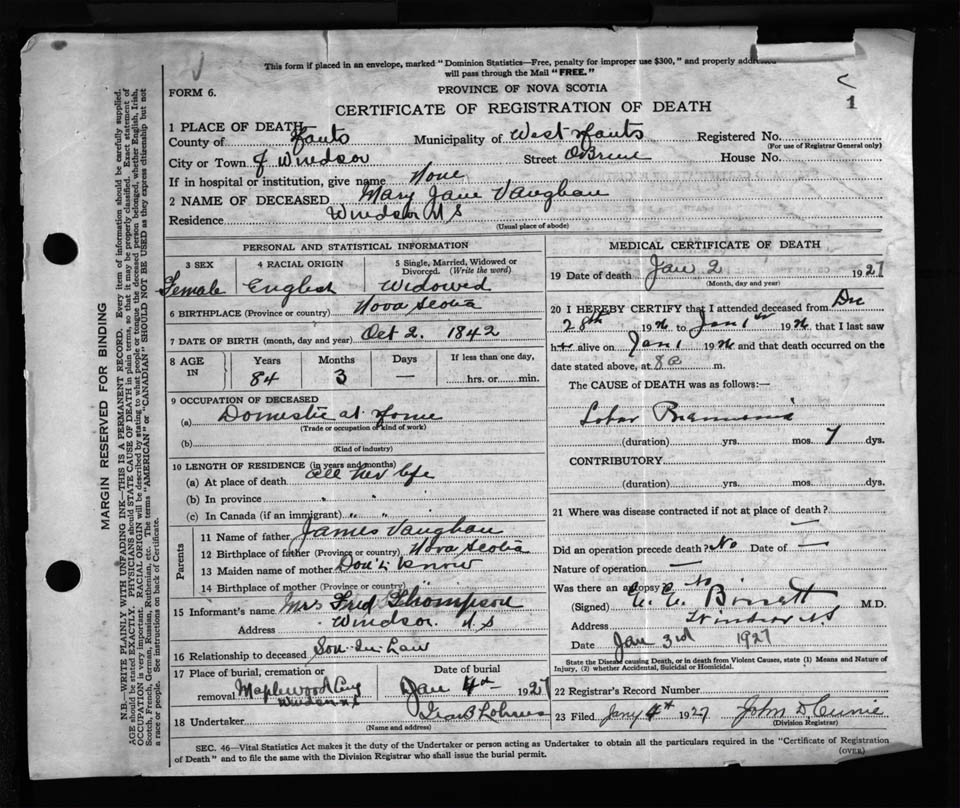 This form if placed in an envelope, marked "Dominion Statistics—Free, penalty for improper use $300," and properly addressed
will pass through the Mail "FREE."
FORM 6.
PROVINCE OF NOVA SCOTIA
1
CERTIFICATE OF REGISTRATION OF DEATH
1 PLACE OF DEATH
County of Hants Municipality of West Hants Registered No.
(For use of Registrar General only)
City or Town of Windsor Street OBrien House No.
If in hospital or institution, give name None
2 NAME OF DECEASED Mary Jane Vaughan
Residence Windsor N S
(Usual place of abode)
PERSONAL AND STATISTICAL INFORMATION
3 SEX 4 RACIAL ORIGIN 5 Single, Married, Widowed or Divorced. (Write the word)
Female English Widowed
6 BIRTHPLACE (Province or country) Nova Scotia
7 DATE OF BIRTH (month, day and year) Oct 2. 1842
8 AGE IN Years Months Days If less than one day,
84 3 — hrs. or min.
9 OCCUPATION OF DECEASED
(a) Domestic at Home
(Trade or occupation or kind of work)
(b)
(Kind of industry)
10 LENGTH OF RESIDENCE (in years and months)
(a) At place of death all her life
(b) In province " " "
(c) In Canada (if an immigrant) " " "
Parents
11 Name of father James Vaughan
12 Birthplace of father (Province or country) Nova Scotia
13 Maiden name of mother Don't know
14 Birthplace of mother (Province or country)
15 Informant's name Mrs Fred Thompson
Address Windsor. N.S
16 Relationship to deceased Son-In-Law
17 Place of burial, cremation or removal Date of burial
Maplewood Windsor Jan 4th 1927
18 Undertaker
(Name and address)
MEDICAL CERTIFICATE OF DEATH
19 Date of death Jan 2 1927
(Month, day and year)
20 I HEREBY CERTIFY that I attended deceased from Dec
28th 1926 to Jan 1st 1926, that I last saw
her alive on Jan 1 1926 and that death occurred on the
date stated above, at m.
The CAUSE of DEATH was as follows:—
Lobar Pneumonia
(duration) yrs. mos. 7 dys.
CONTRIBUTORY
(duration) yrs. mos. dys.
21 Where was disease contracted if not at place of death?
—
Did an operation precede death? No Date of —
Nature of operation —
Was there an autopsy? No
(Signed) Bissett M.D.
Address Windsor N S
Date Jan 3rd 1927
State the Disease causing Death, or in death from Violent Causes, state (1) Means and Nature of
Injury, (2) whether Accidental, Suicidal or Homicidal.
22 Registrar's Record Number
23 Filed Jany 4th 1927 John D Currie
(Division Registrar)
SEC. 46—Vital Statistics Act makes it the duty of the Undertaker or person acting as Undertaker to obtain all the particulars required in the "Certificate of Registration
of Death" and to file the same with the Division Registrar who shall issue the burial permit.
(OVER)
MARGIN RESERVED FOR BINDING
N.B.—WRITE PLAINLY WITH UNFADING INK—THIS IS A PERMANENT RECORD. Every item of information should be carefully supplied.
AGE should be stated EXACTLY. PHYSICIANS should STATE CAUSE OF DEATH in plain terms, so that it may be properly classified. Exact statement of
OCCUPATION is very important. RACIAL ORIGIN will be described by stating to what people or tongue the deceased person belonged, whether English, Irish,
Scotch, French, German, Russian, Ruthenian, etc. The terms "AMERICAN" or "CANADIAN" SHOULD NOT BE USED as they express citizenship but not
a race or people. See instructions on back of Certificate.